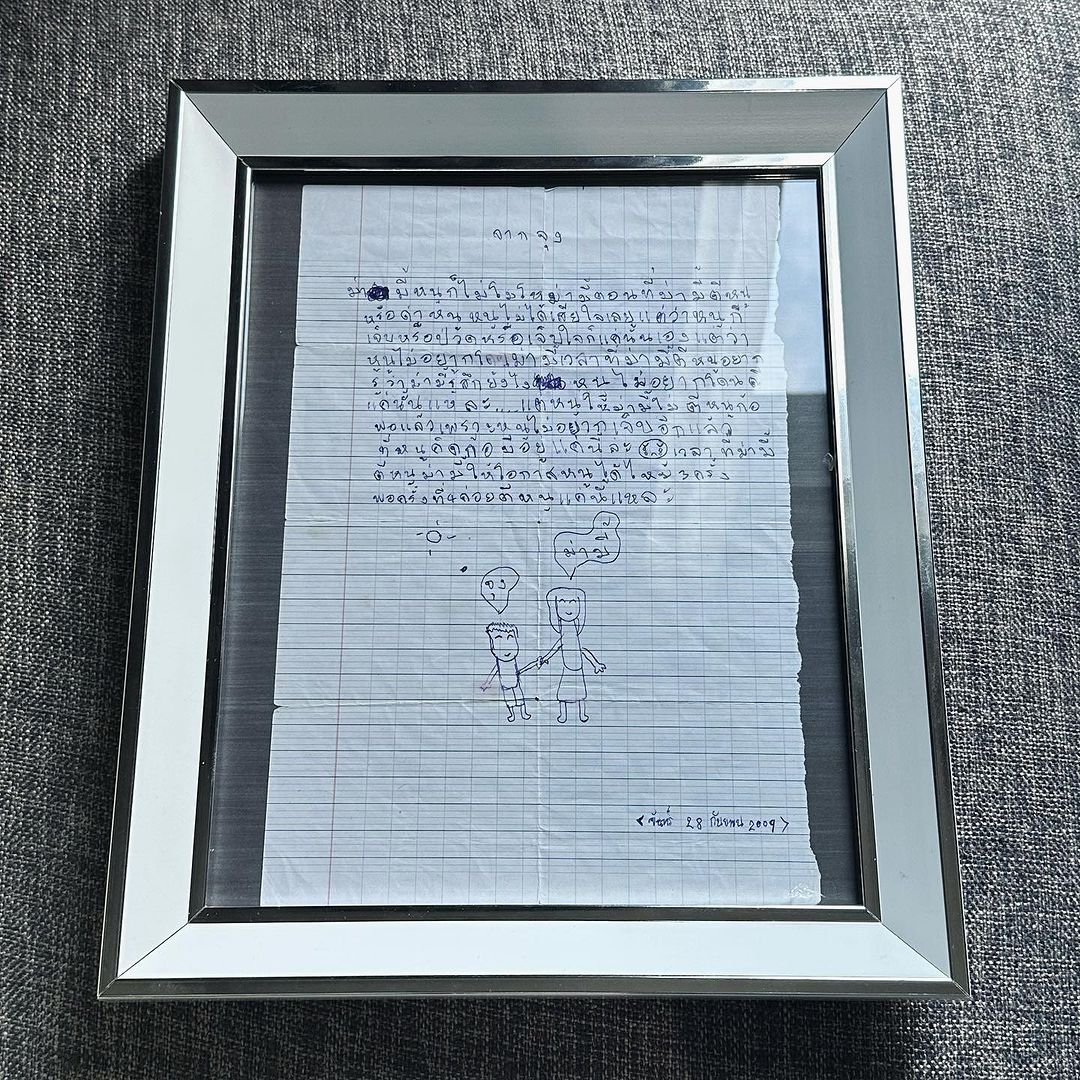 จากจุง
ม่ามี้หนูก็ไม่โมโหม่ามี๊ตอนที่ม่ามี้ตีหนู
หรือด่าหนูหนูไม่ได้เสียใจเลยแต่ว่าหนูก็
เจ็บหรือปวดหรือเจ็บใจก็แค่นั้นเองแต่ว่า
หนูไม่อยาก เวลาที่ม่ามี้ตีหนูอยาก
รู้ว่าม่ามี้รู้สึกยังไง หนูไม่อยากโดนตี
แค่นั้นแห้ละ.....แต่หนูให้ม่ามี้ไม่ตีหนูก้อ
พอแล้วเพราะหนูไม่อยากเจ็บอีกแล้ว
ที่หนูคิดก้อมีอยู่แค่นี้ล่ะ เวลาที่ม่ามี้
ตีหนูม่ามี้ให้โอกาสหนูได้ไหม้3ครั้ง
พอครั้งที่4ค่อยตีหนูแค่นี้แหละ
ม่ามี้
จุง
<จันทร์ 28 กันยายน 2009>